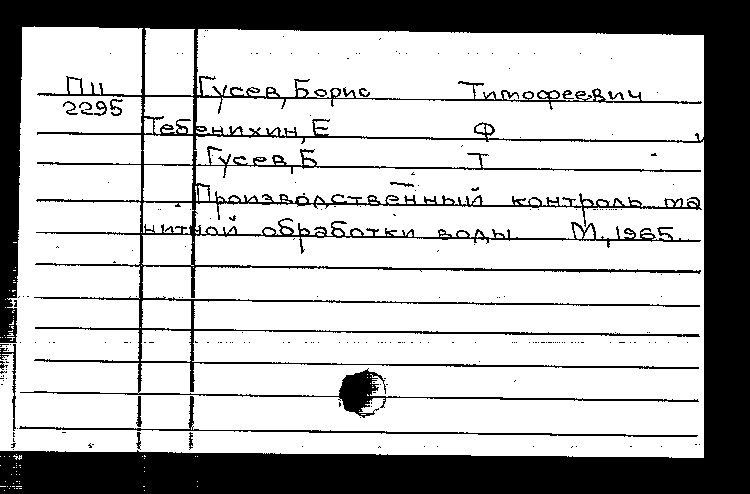 П11 Гусев, Борис Тимофеевич
2295
Тебенихин, Е Ф и
Гусев, Б Т
Производственный контроль ма
нитной обработки воды М., 1965.